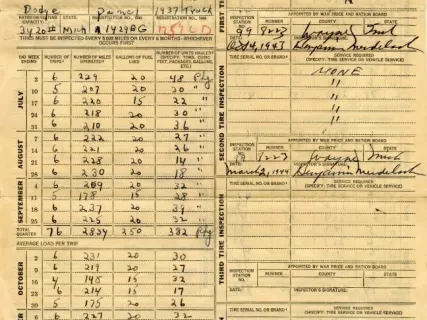 Dodge Panel 1937 Truck
REGISTRATION NO. 1942
3420 st Mich A 14298G
TIRES MUST BE INSPECTED EVERY 5,000 MILES OR EVERY 6 MONTHS—WHICHEVER OCCURS FIRST
WEEK ENDED NUMBER OF TRIPS NUMBER OF MILES GALLONS OF FUEL USED NUMBER OF UNITS HAULED
JULY
2 6 229 20 48 Pkg
6 207 20 30 "
6 220 15 22 "
24 6 218 20 30 "
31 6 210 20 36 "
AUGUST
7 6 222 20 27 "
14 6 221 20 26 "
21 6 228 20 14 "
28 6 230 20 18 "
SEPTEMBER
4 6 209 20 32 "
11 5 178 15 28 "
18 6 237 20 39 "
25 6 225 20 32 "
TOTAL QUARTER 76 2834 250 382 Pkg
AVERAGE LOAD PER TRIP
OCTOBER
2 6 231 20 30
9 6 219 20 27
4 148 15 32
6 214 15 17
30 5 175 20 26
6 227 20 32
FIRST TI
APPOINTED BY WAR PRICE AND RATION BOARD
99 8223 Wayne Mich
DATE INSPECTOR'S SIGNATURE
Oct 4, 1943 Benjamin
TIRE SERIAL NO. OR BRAND SERVICE REQUIRED
(SPECIFY: TIRE, TUBE OR VEHICLE SERVICE)
NONE
"
"
"
"
SECOND TIRE INSPECTION
INSPECTION STATION APPOINTED BY WAR PRICE AND RATION BOARD
NUMBER COUNTY STATE
1223 Wayne Mich
DATE INSPECTOR'S SIGNATURE
March 2, 1944 Benjamin
TIRE SERIAL NO. OR BRAND SERVICE REQUIRED
(SPECIFY: TIRE, TUBE OR VEHICLE SERVICE)
THIRD TIRE INSPECTION
INSPECTION STATION APPOINTED BY WAR PRICE AND RATION BOARD
NUMBER COUNTY STATE
DATE INSPECTOR'S SIGNATURE
TIRE SERIAL NO. OR BRAND SERVICE REQUIRED
(SPECIFY: TIRE, TUBE OR VEHICLE SERVICE)